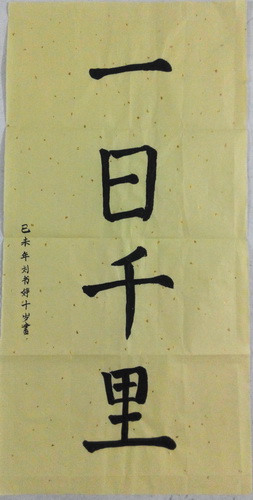 一日千里
己未年刘书妤十岁書